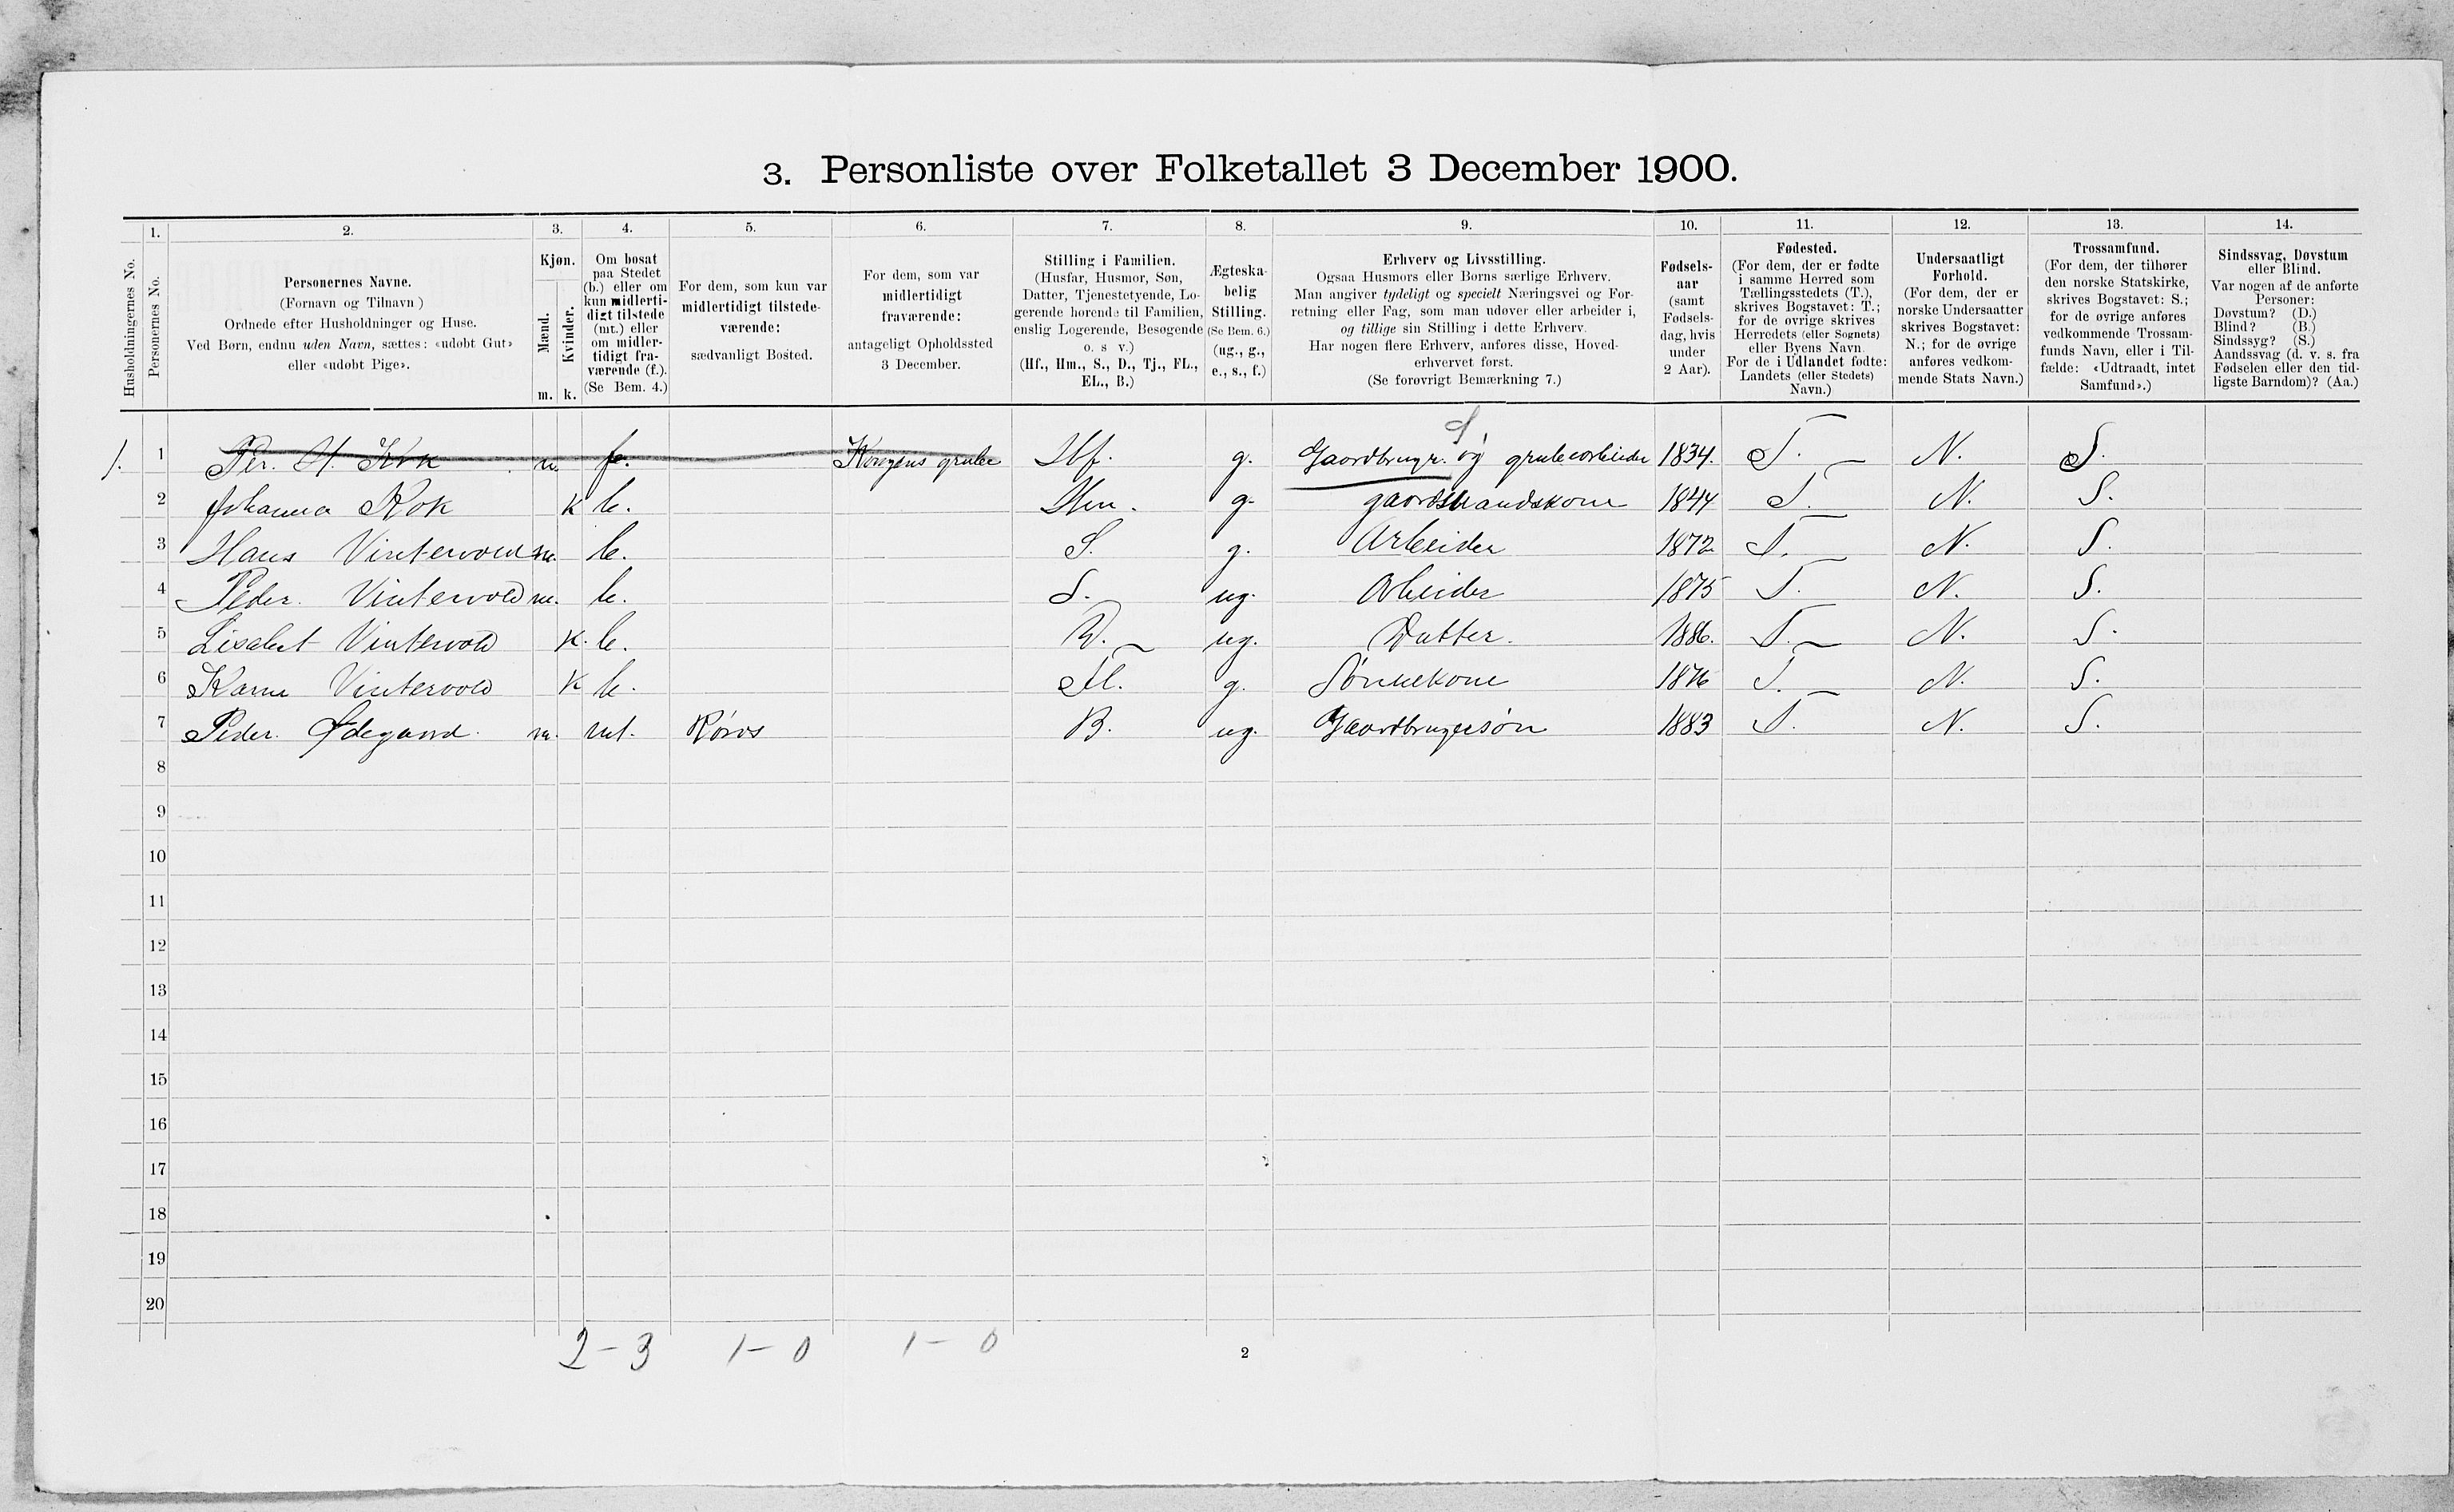 3. Personliste over Folketallet 3 December 1900.
1. 2. 3. 4. 5. 6. 7. 8. 9. 10. 11. 12. 13. 14.
Husholdningernes No.
Personernes No.
Personernes Navne.
(Fornavn og Tilnavn.)
Ordnede efter Husholdninger og Huse.
Ved Børn, endnu uden Navn, sættes: «udøbt Gut»
eller «udøbt Pige».
Kjøn.
Mænd.
Kvinder.
m. k.
Om bosat
paa Stedet
(b.) eller om
kun midlerti-
digt tilstede
(mt.) eller
om midler-
tidigt fra-
værende (f.).
(Se Bem. 4.)
For dem, som kun var
midlertidigt tilstede-
værende:
sædvanligt Bosted.
For dem, som var
midlertidigt
fraværende:
antageligt Opholdssted
3 December.
Stilling i Familien.
(Husfar, Husmor, Søn,
Datter, Tjenestetyende, Lo-
gerende hørende til Familien,
enslig Logerende, Besøgende
o. s. v.)
(Hf., Hm., S., D., Tj., FL.,
EL., B.)
Ægteska-
belig
Stilling.
(Se Bem. 6.)
(ug., g.,
e., s., f.)
Erhverv og Livsstilling.
Ogsaa Husmors eller Børns særlige Erhverv.
Man angiver tydeligt og specielt Næringsvei og For-
retning eller Fag, som man udøver eller arbeider i,
og tillige sin Stilling i dette Erhverv.
Har nogen flere Erhverv, anføres disse, Hoved-
erhvervet først.
(Se forøvrigt Bemærkning 7.)
Fødsels-
aar
(samt
Fødsels-
dag, hvis
under
2 Aar).
Fødested.
(For dem, der er fødte
i samme Herred som
Tællingsstedets (T.),
skrives Bogstavet: T.;
for de øvrige skrives
Herredets (eller Sognets)
eller Byens Navn.
For de i Udlandet fødte:
Landets (eller Stedets)
Navn.)
Undersaatligt
Forhold.
(For dem, der er
norske Undersaatter
skrives Bogstavet:
N.; for de øvrige
anføres vedkom-
mende Stats Navn.)
Trossamfund.
(For dem, der tilhører
den norske Statskirke,
skrives Bogstavet: S.;
for de øvrige anføres
vedkommende Trossam-
funds Navn, eller i Til-
fælde: «Udtraadt, intet
Samfund».)
Sindssvag, Døvstum
eller Blind.
Var nogen af de anførte
Personer:
Døvstum? (D.)
Blind? (B.)
Sindssyg? (S.)
Aandssvag (d. v. s. fra
Fødselen eller den tid-
ligste Barndom)? (Aa.)
1. 1 Per. H. Kok m. f. Kongens grube Hf. g. Gaardbruger. og grubearbeider 1834. T. N. S.
2 Johanna Kok k b. Hm. g. gaardmandskone 1844 T. N. S.
3 Hans Vintervold m. b. S. g. Arbeider 1872 T. N. S.
4 Peder. Vintervold m. b. S. ug. Arbeider 1875 T. N. S.
5 Lisabet Vintervold k. b. D. ug. Datter. 1886. T. N. S.
6 Karne Vintervold k b. g. Sønnekone 1876 T. N. S.
7 Peder. Ødegaard. m. mt. Røros B. ug. Gaardbrugersøn 1883 T. N. S.
8
9
10
11
12
13
14
15
16
17
18
19
20
2-3 1-0 1-0
2